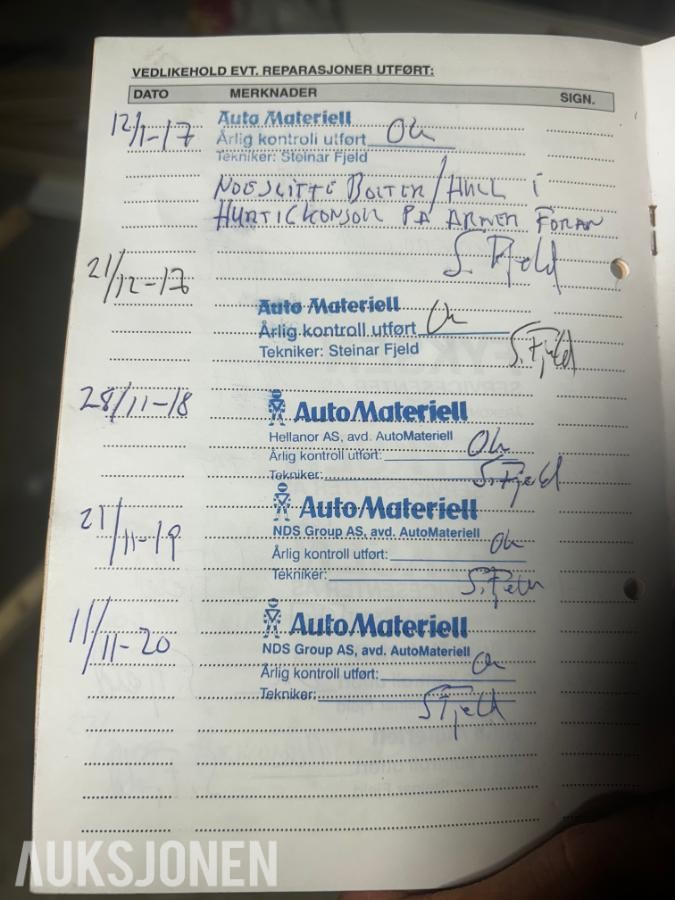 VEDLIKEHOLD EVT. REPARASJONER UTFØRT:
DATO MERKNADER SIGN.
12/1-17 Auto Materiell
Årlig kontroll utført Ok
Tekniker: Steinar Fjeld
NOE SLITTE BOLTER/HULL i
HURTIGKONSOLL PÅ ARMER FORAN
S. Fjeld
21/12-17
Auto Materiell
Årlig kontroll utført Ok
Tekniker: Steinar Fjeld S. Fjeld
28/11-18 AutoMateriell
Hellanor AS, avd. AutoMateriell
Årlig kontroll utført: Ok
Tekniker: S. Fjeld
21/11-19 AutoMateriell
NDS Group AS, avd. AutoMateriell
Årlig kontroll utført: Ok
Tekniker: S. Fjeld
11/11-20 AutoMateriell
NDS Group AS, avd. AutoMateriell
Årlig kontroll utført: Ok
Tekniker: S Fjeld
AUKSJONEN